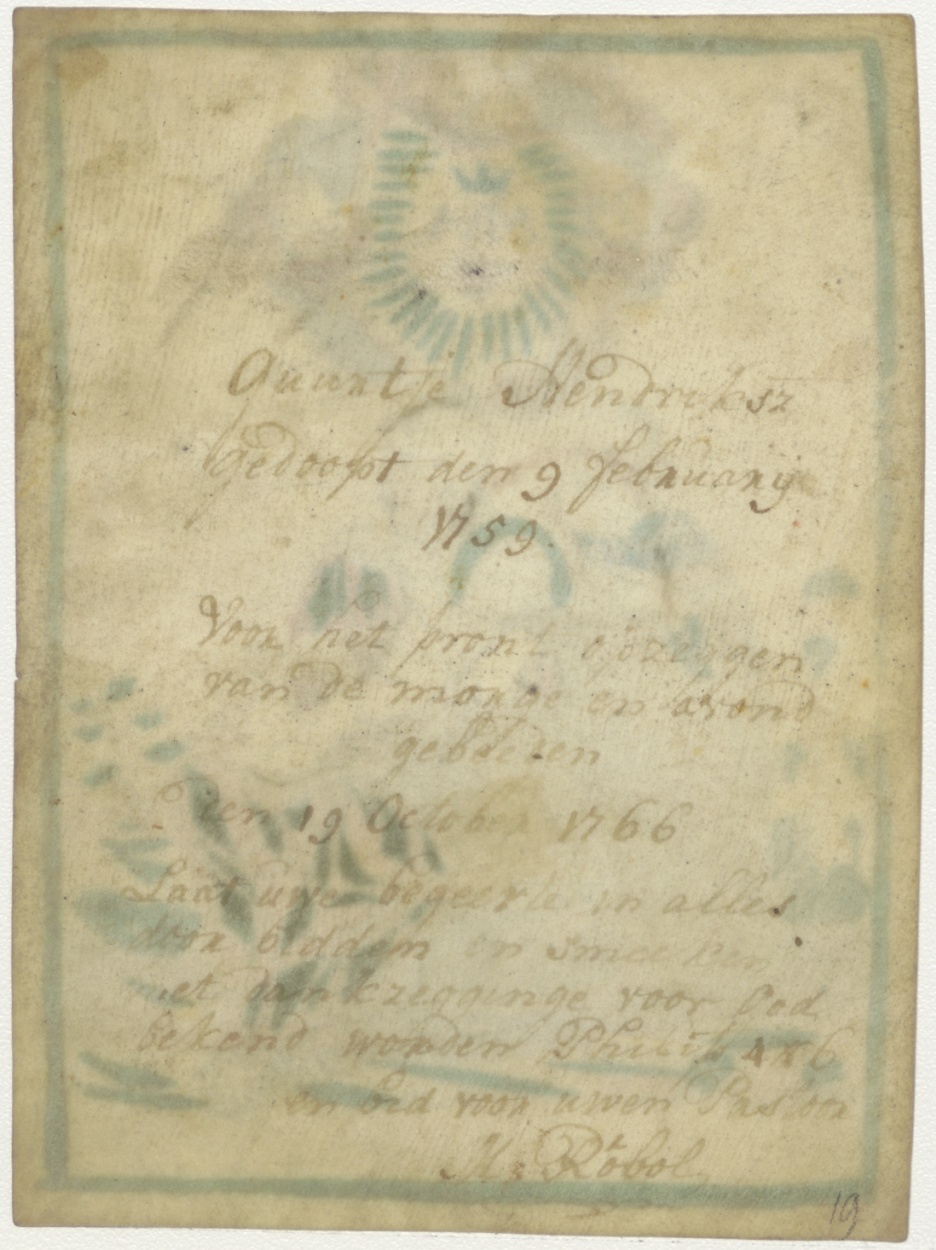 Quuntje Hendriksz
gedoopt den 9 februarij
1759.
Voor het pront opzeggen
van de morge en avond
gebeden
Den 19 October 1766
Laat uwe begeerte in alles
door bidden en smeeken
met dankzegginge voor God
bekend worden Philip 4 v 6
en bid voor uwen Pastoor
H: Robol
19